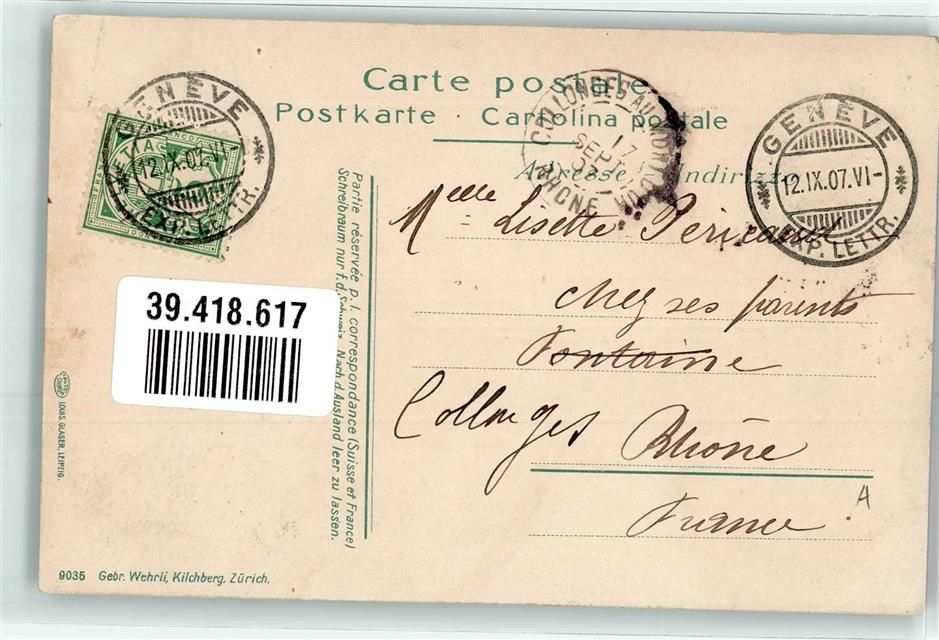 Carte postale
Postkarte - Cartolina postale
Adresse Indirizzo
GENÈVE
12.IX.07.VI-
EXP. LETTR.
FRANCO
COLLONGES AU MONT D'OR
17
SEPT
RHÔNE
GENÈVE
12.IX.07.VI-
EXP. LETTR.
Melle Lisette Pericaud
chez ses parents
Fontaine
Collonges Rhône
France
A
Partie réservée p. l. correspondance (Suisse et France)
Schreibraum nur f. d. Schweiz. Nach d. Ausland leer zu lassen.
39.418.617
LOUIS GLASER, LEIPZIG.
9035 Gebr. Wehrli, Kilchberg, Zürich.